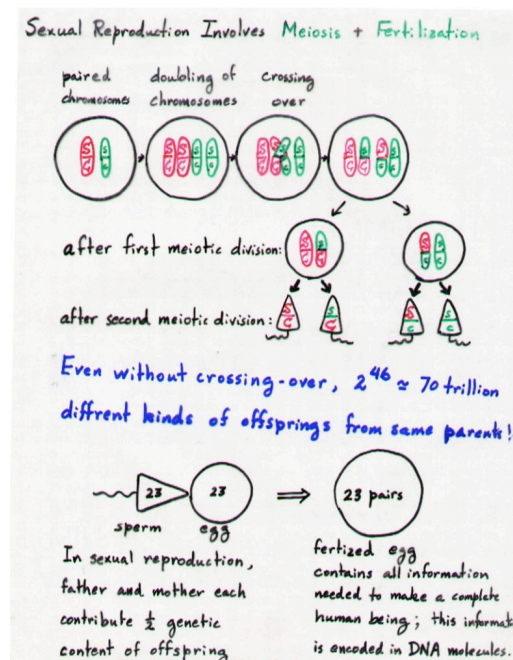 Sexual Reproduction Involves Meiosis + Fertilization
paired doubling of crossing
chromosomes chromosomes over
after first meiotic division:
after second meiotic division:
Even without crossing-over, 2^46 ≃ 70 trillion
diffrent kinds of offsprings from same parents!
23 23 ⇒ 23 pairs
sperm egg
In sexual reproduction,
father and mother each
contribute ½ genetic
content of offspring
fertized egg
contains all information
needed to make a complete
human being; this informat
is encoded in DNA molecules.